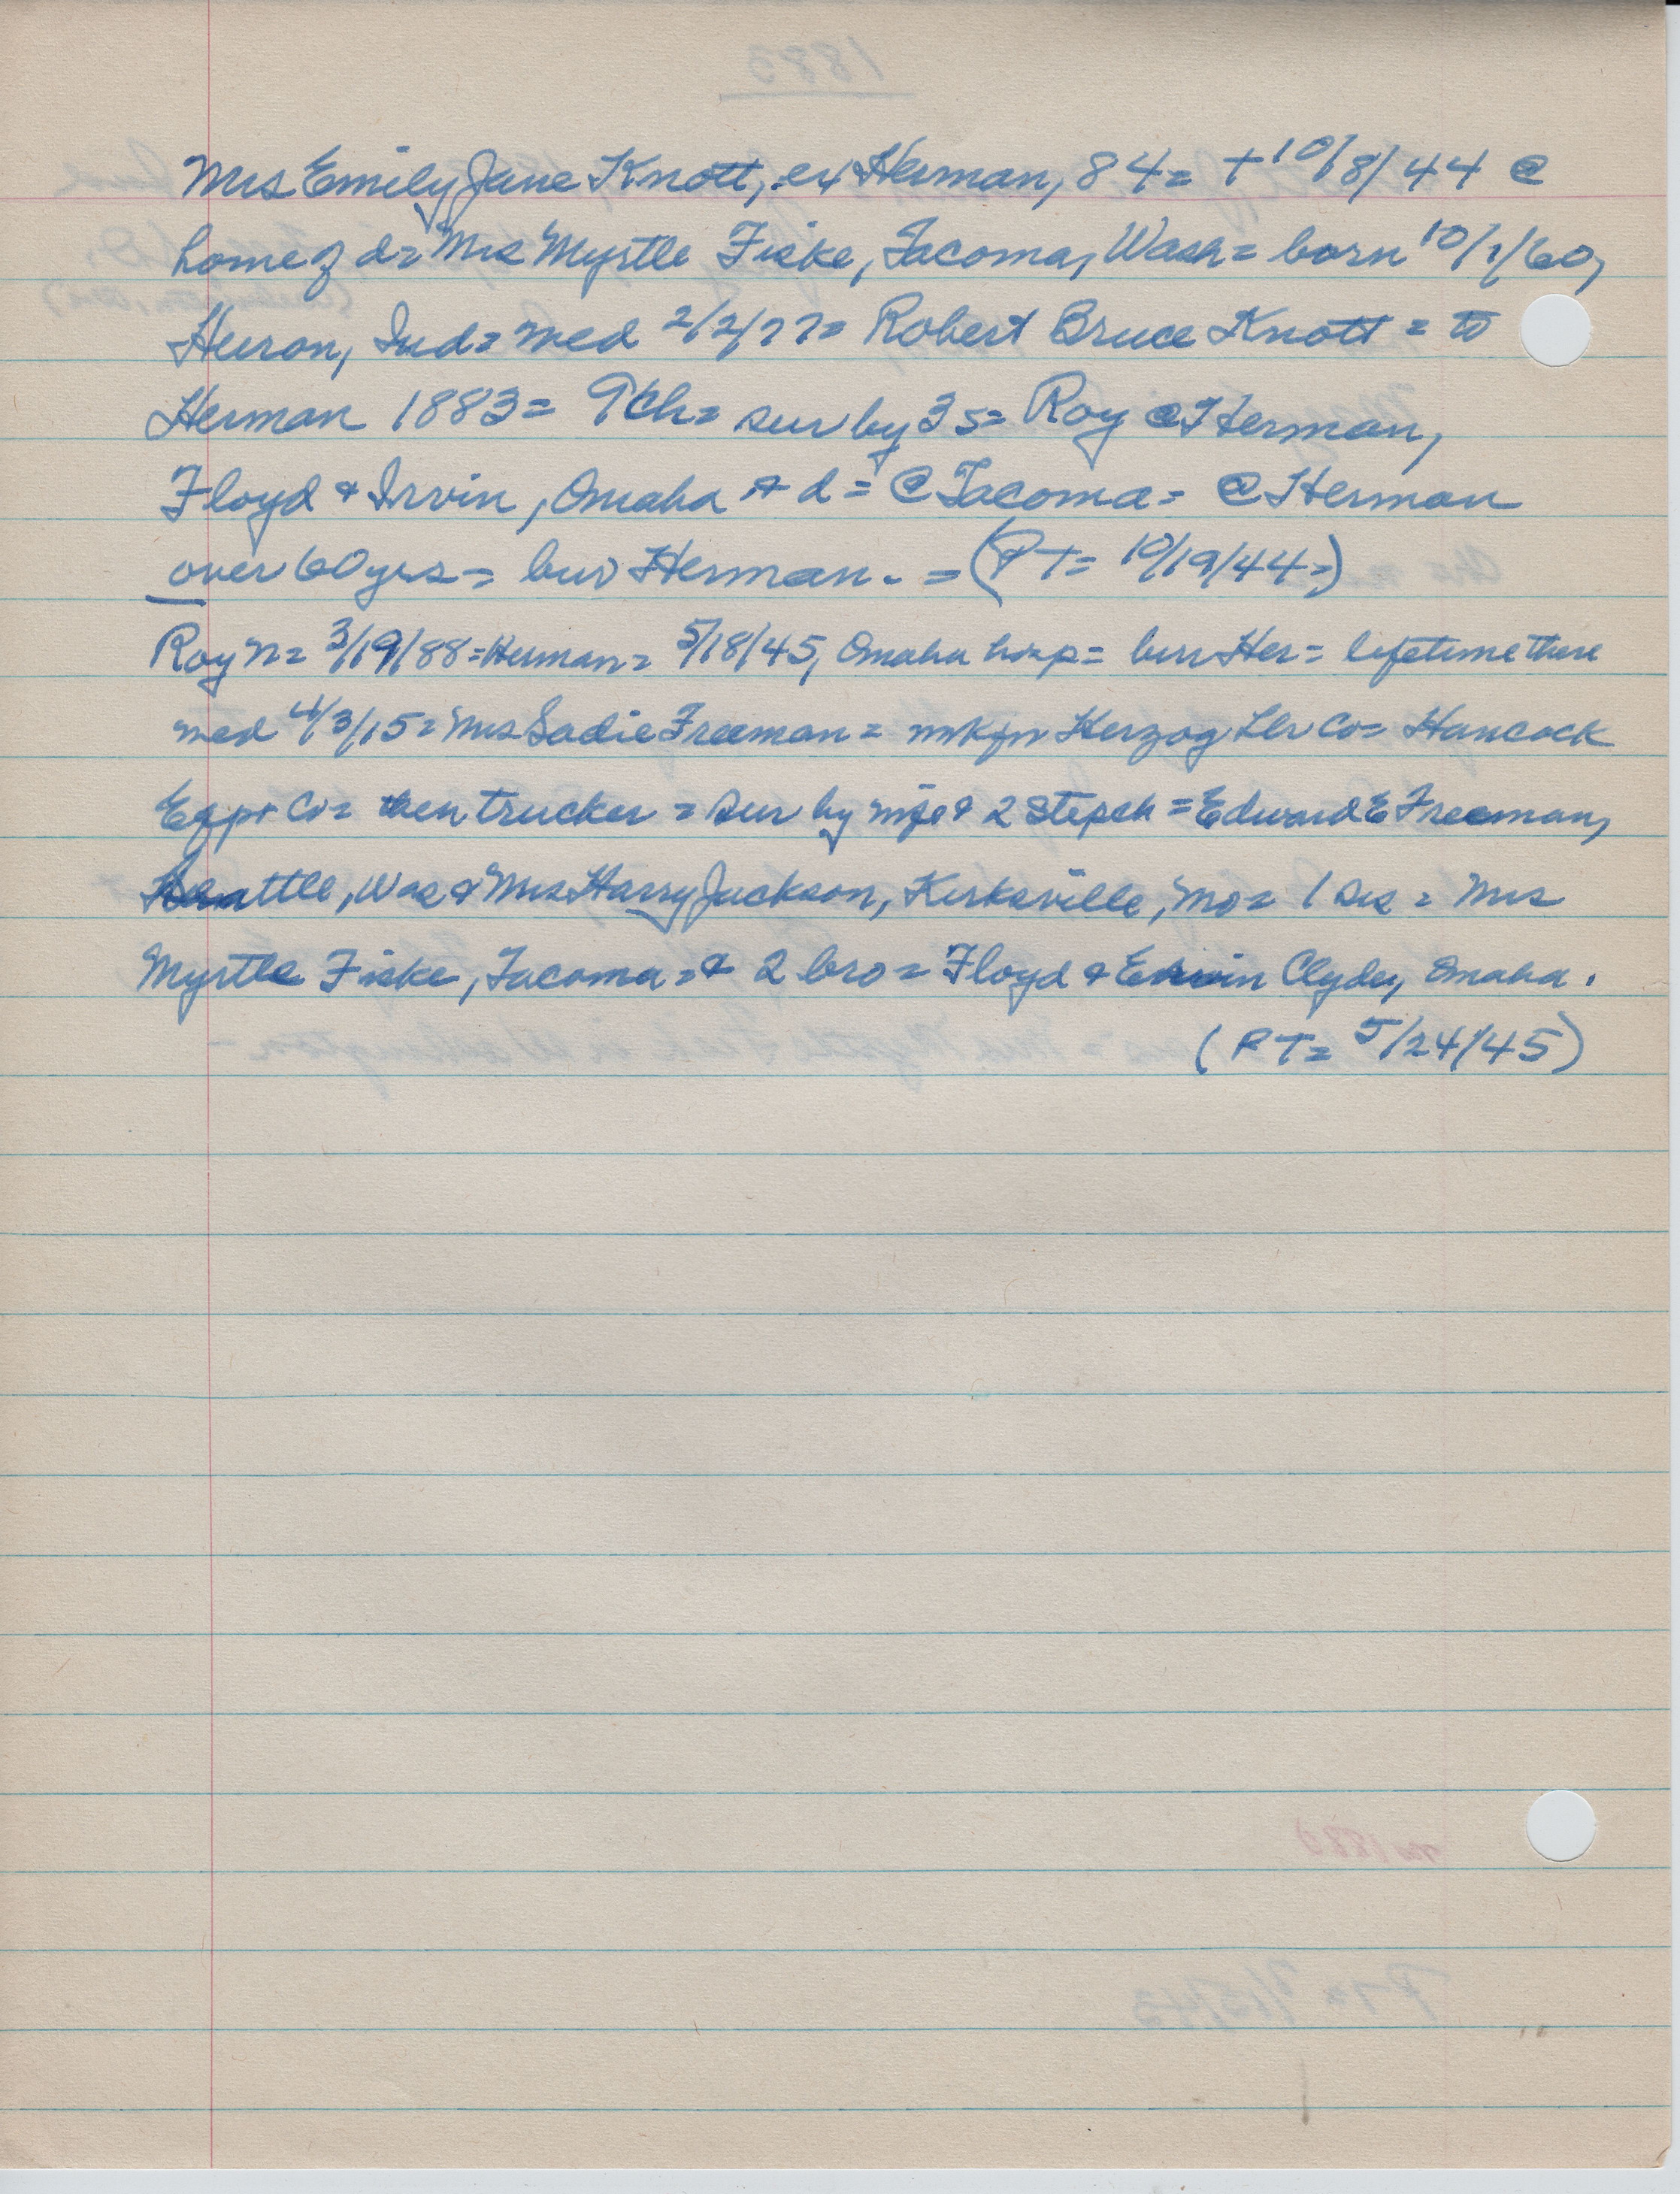 Mrs Emily Jane Knott, ex Herman, 84 = + 10/8/44 @
home of d = Mrs Myrtle Fiske, Tacoma, Wash = born 10/1/60,
Huron, Ind = med 2/2/77 = Robert Bruce Knott = to
Herman 1883 = 9 ch = sur by 3 s = Roy @ Herman,
Floyd & Irvin, Omaha & d = @ Tacoma = @ Herman
over 60 yrs = bur Herman. = (PT = 10/19/44 =)
Roy n = 3/19/88 = Herman = 5/18/45, Omaha hosp = bur Her = lifetime there
med 4/3/15 = Mrs Sadie Freeman = Herzog Lbr Co = Hancock
Co = then trucker = sur by wife & 2 stepch = Edward E Freeman,
Seattle, Was & Mrs Harry Jackson, Kirksville, Mo = 1 sis = Mrs
Myrtle Fiske, Tacoma = & 2 bro = Floyd & Erwin Clyde, Omaha.
(PT = 5/24/45)